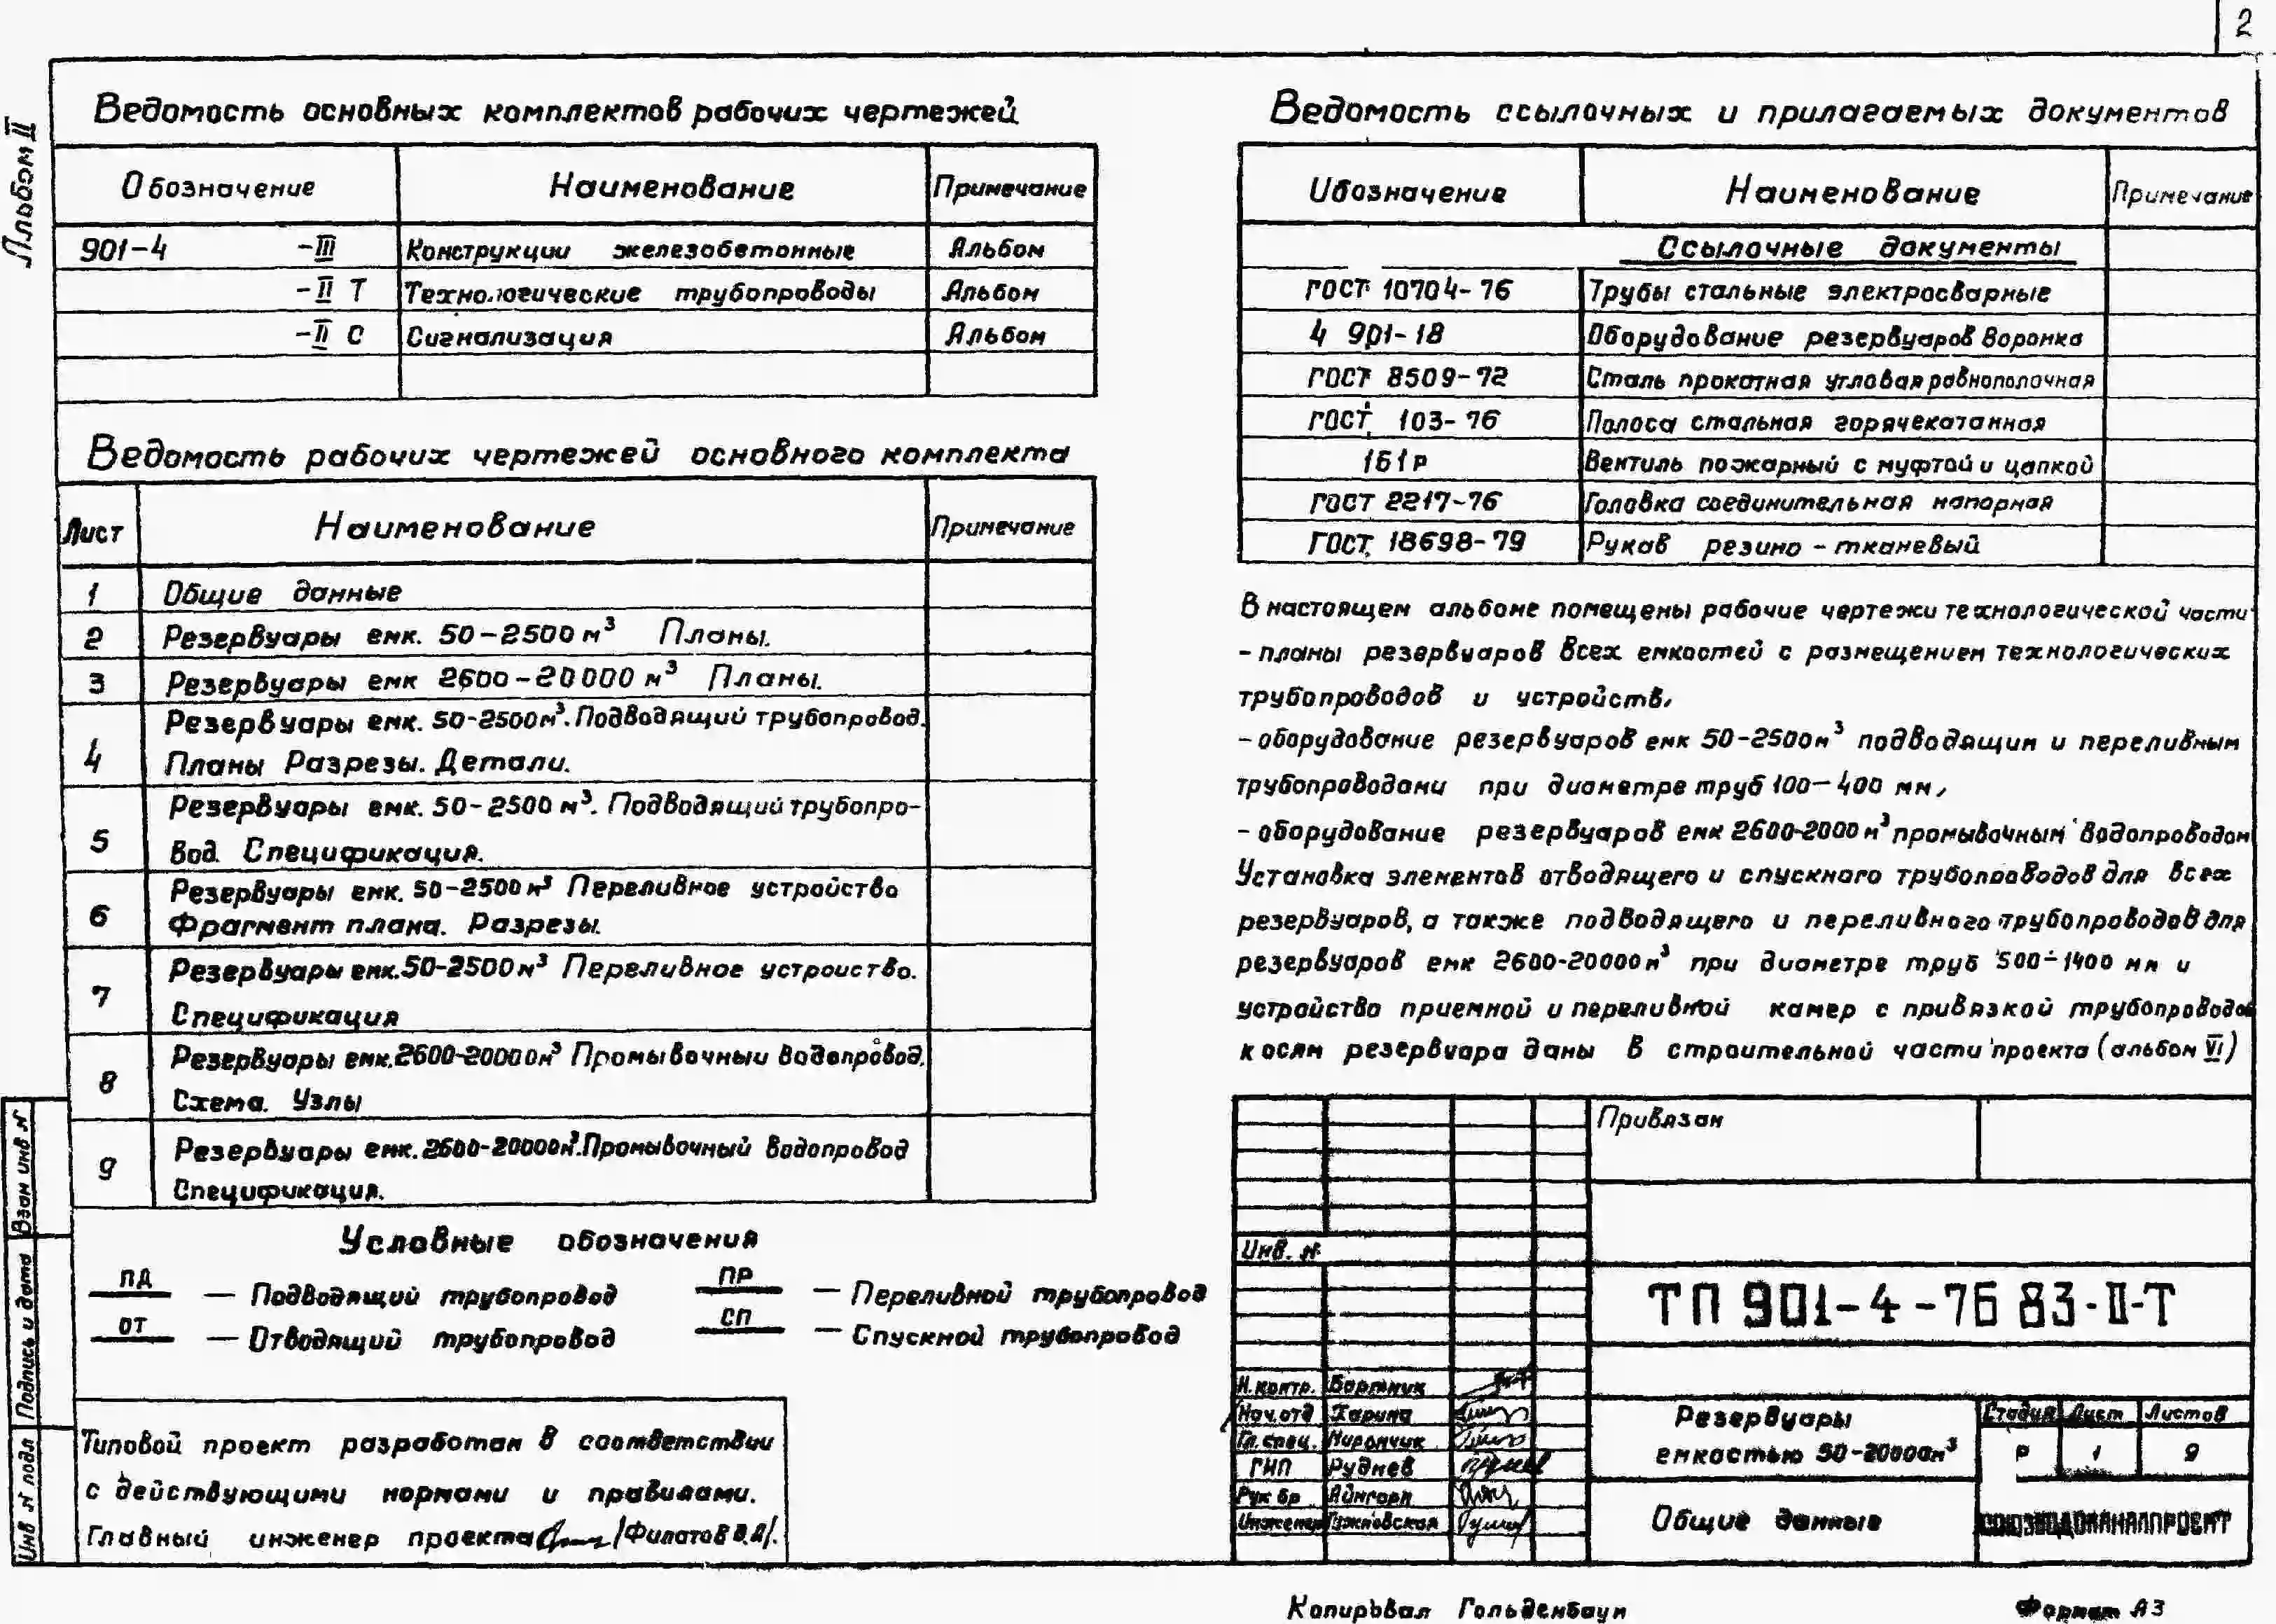 2
Альбом II
Ведомость основных комплектов рабочих чертежей
Обозначение Наименование Примечание
901-4 -III Конструкции железобетонные Альбом
-II Т Технологические трубопроводы Альбом
-II С Сигнализация Альбом
Ведомость рабочих чертежей основного комплекта
Лист Наименование Примечание
1 Общие данные
2 Резервуары емк. 50-2500 м³ Планы.
3 Резервуары емк 2600-20000 м³ Планы.
4 Резервуары емк. 50-2500м³. Подводящий трубопровод.
Планы Разрезы. Детали.
5 Резервуары емк. 50-2500 м³. Подводящий трубопро-
вод. Спецификация.
6 Резервуары емк. 50-2500 м³ Переливное устройство
Фрагмент плана. Разрезы.
7 Резервуары емк. 50-2500м³ Переливное устройство.
Спецификация
8 Резервуары емк. 2600-20000м³ Промывочный водопровод.
Схема. Узлы
9 Резервуары емк. 2600-20000м³. Промывочный водопровод
Спецификация.
Условные обозначения
ПД — Подводящий трубопровод
ПР — Переливной трубопровод
ОТ — Отводящий трубопровод
СП — Спускной трубопровод
Типовой проект разработан в соответствии
с действующими нормами и правилами.
Главный инженер проекта /Филатов В.А/.
Взам инв №
Подпись и дата
Инв № подл
Ведомость ссылочных и прилагаемых документов
Обозначение Наименование Примечание
Ссылочные документы
ГОСТ 10704-76 Трубы стальные электросварные
4 901-18 Оборудование резервуаров воронка
ГОСТ 8509-72 Сталь прокатная угловая равнополочная
ГОСТ 103-76 Полоса стальная горячекатанная
1б1р Вентиль пожарный с муфтой и цапкой
ГОСТ 2217-76 Головка соединительная напорная
ГОСТ 18698-79 Рукав резино-тканевый
В настоящем альбоме помещены рабочие чертежи технологической части
- планы резервуаров всех емкостей с размещением технологических
трубопроводов и устройств,
- оборудование резервуаров емк 50-2500м³ подводящим и переливным
трубопроводами при диаметре труб 100-400 мм,
- оборудование резервуаров емк 2600-2000 м³ промывочным водопроводом
Установка элементов отводящего и спускного трубопроводов для всех
резервуаров, а также подводящего и переливного трубопроводов для
резервуаров емк 2600-20000м³ при диаметре труб 500-1400 мм и
устройство приемной и переливной камер с привязкой трубопроводов
к осям резервуара даны в строительной части проекта (альбом VI)
Привязан
Инв. №
ТП 901-4-76 83-II-Т
Н. контр. Бортник
Нач. отд. Харина
Гл. спец. Мирончик
ГИП Руднев
Рук бр Айнгорн
Инженер
Резервуары
емкостью 50-20000м³
Стадия Лист Листов
Р 1 9
Общие данные
СОЮЗВОДОКАНАЛПРОЕКТ
Копировал Гольденбаум
Формат А3